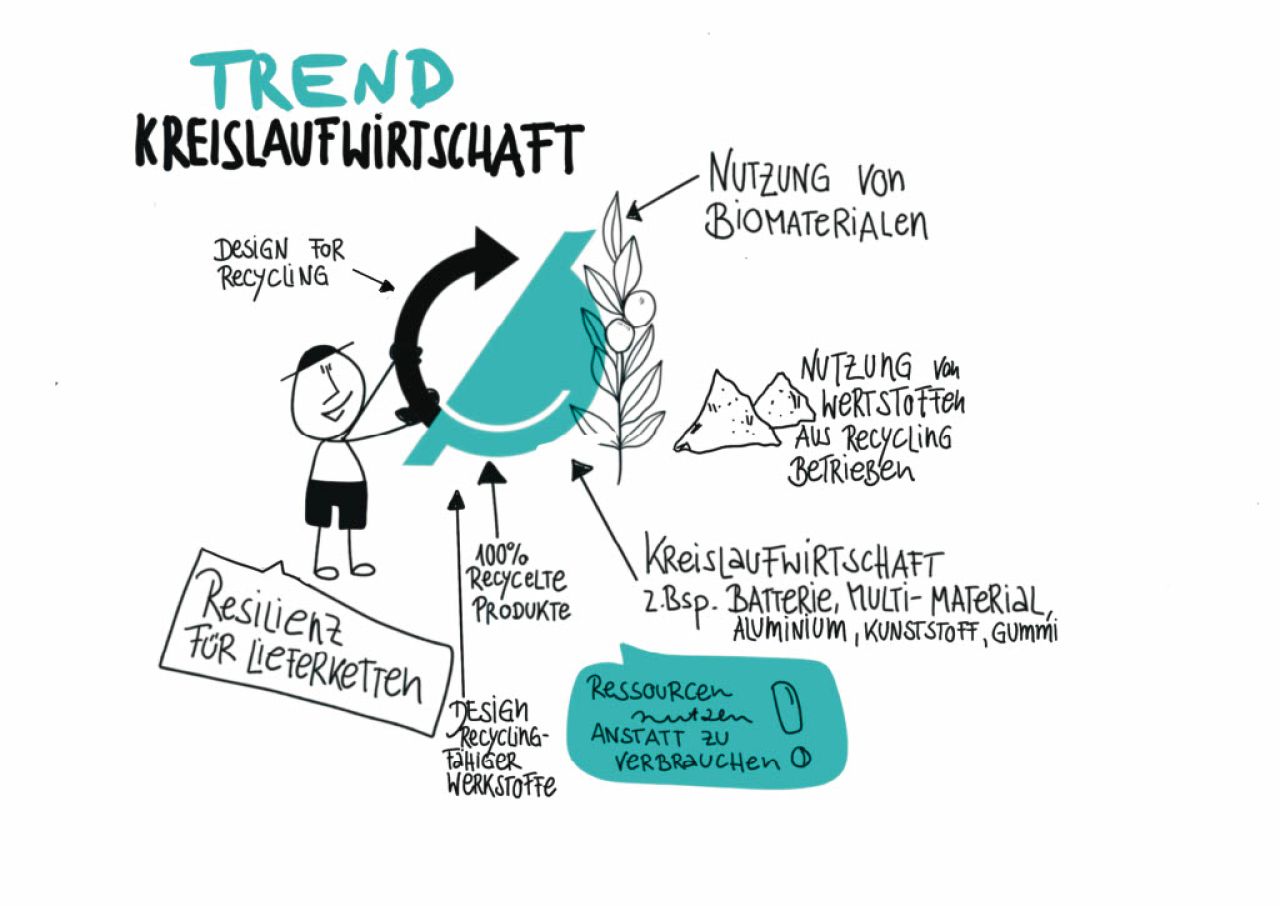 TREND
KREISLAUFWIRTSCHAFT
NUTZUNG VON
BIOMATERIALEN
DESIGN FOR
RECYCLING
NUTZUNG VON
WERTSTOFFEN
AUS RECYCLING
BETRIEBEN
100%
RECYCELTE
PRODUKTE
KREISLAUFWIRTSCHAFT
Z.BSP. BATTERIE, MULTI-MATERIAL,
ALUMINIUM, KUNSTSTOFF, GUMMI
RESILIENZ
FÜR LIEFERKETTEN
DESIGN
RECYCLING-
FÄHIGER
WERKSTOFFE
RESSOURCEN
nutzen
ANSTATT ZU
VERBRAUCHEN !